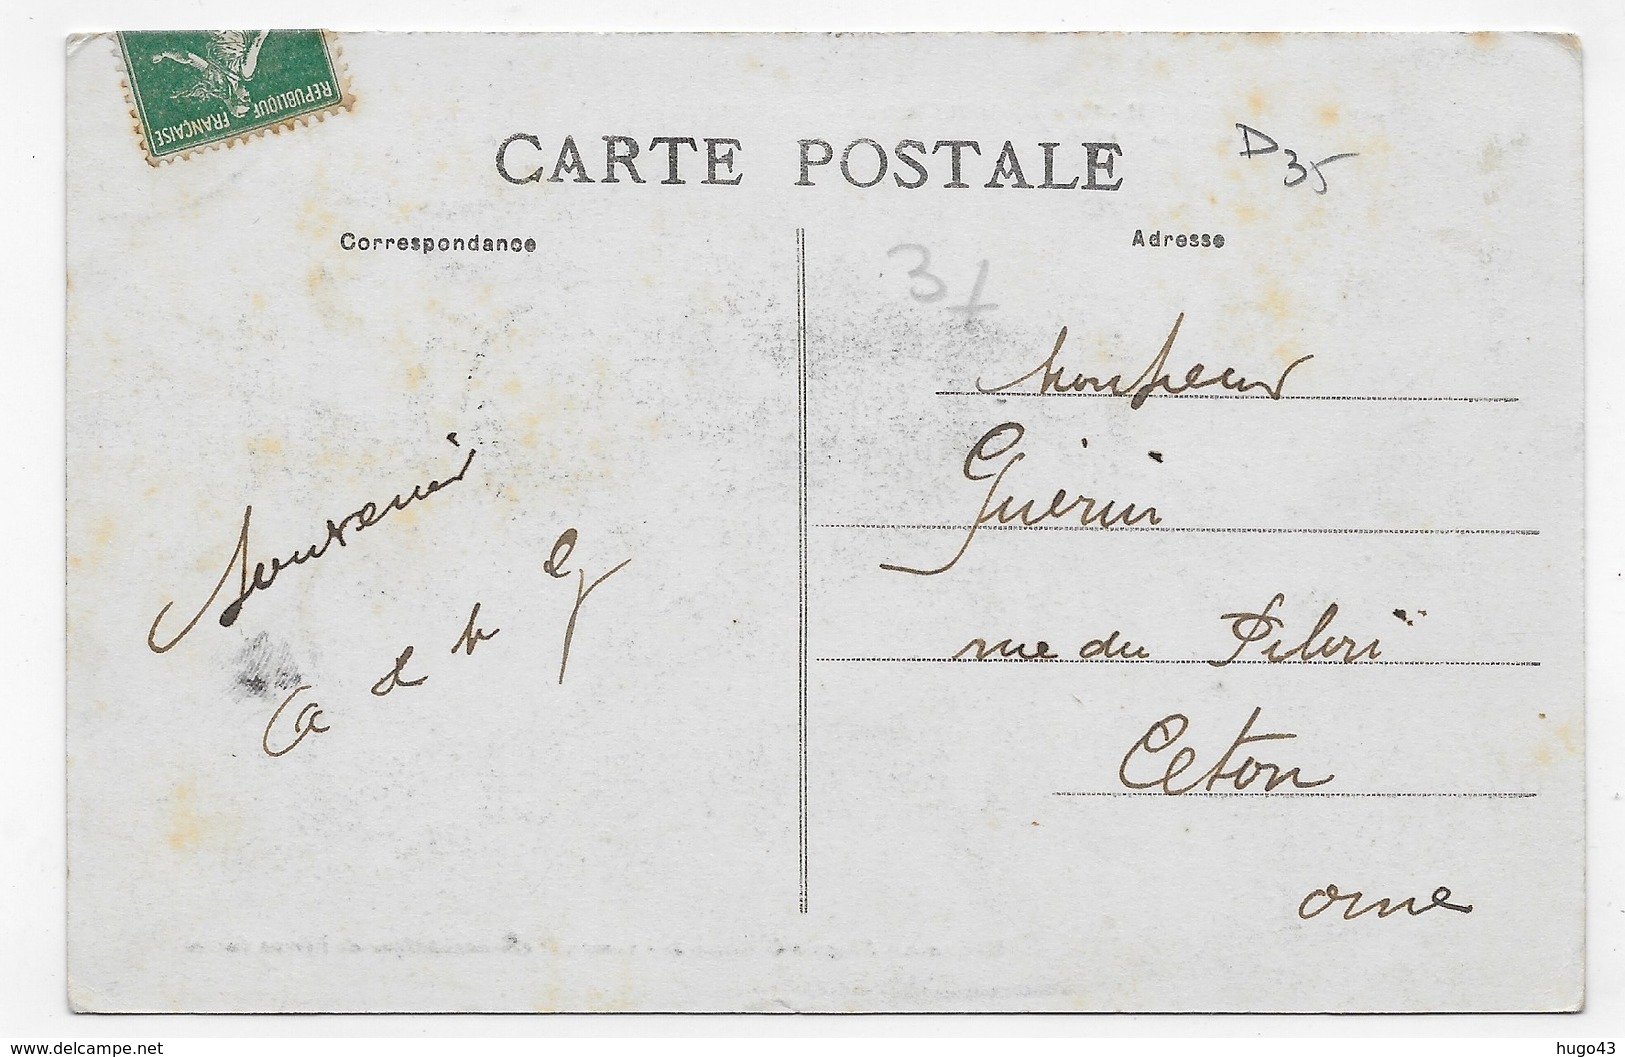 REPUBLIQUE FRANÇAISE
CARTE POSTALE
D35
Correspondance
Adresse
31
Monsieur
Guérin
rue du Pilori
Ceton
Orne
Souvenir
delcampe.net
hugo43